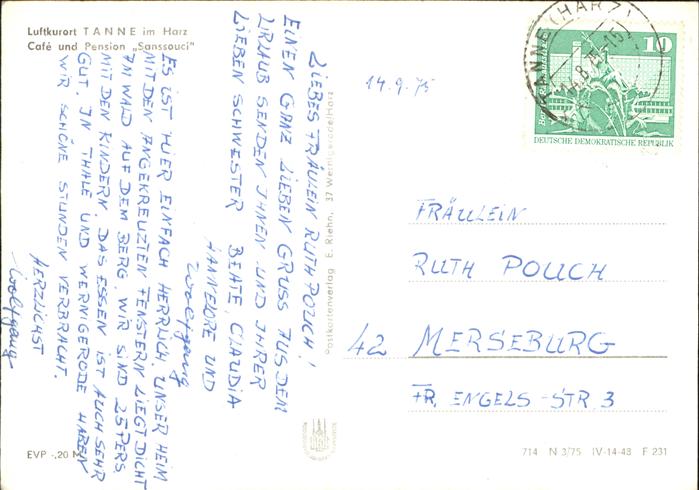 Luftkurort TANNE im Harz
Café und Pension „Sanssouci"
LIEBES FRÄULEIN RUTH POUCH!
EINEN GANZ LIEBEN GRUSS AUS DEM
URLAUB SENDEN IHNEN UND IHRER
LIEBEN SCHWESTER BEATE, CLAUDIA
HANNELORE UND
Wolfgang
ES IST HIER EINFACH HERRLICH. UNSER HEIM
MIT DEN ANGEKREUZTEN FENSTERN LIEGT DICHT
AM WALD AUF DEM BERG. WIR SIND 25 PERS.
MIT DEN KINDERN. DAS ESSEN IST AUCH SEHR
GUT. IN THALE UND WERNIGERODE HABEN
WIR SCHÖNE STUNDEN VERBRACHT.
HERZLICHST
Wolfgang
EVP -,20 M
Postkartenverlag E. Riehn, 37 Wernigerode/Harz
14.9.75
TANNE (HARZ)
10
DEUTSCHE DEMOKRATISCHE REPUBLIK
FRÄULEIN
RUTH POUCH
42 MERSEBURG
FR. ENGELS-STR. 3
714 N 3/75 IV-14-48 F 231